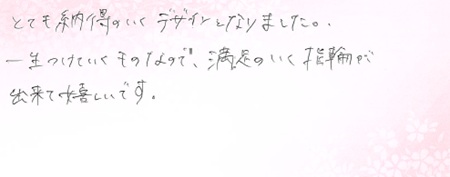 とても納得のいくデザインとなりました。
一生つけていくものなので、満足のいく指輪が
出来て嬉しいです。